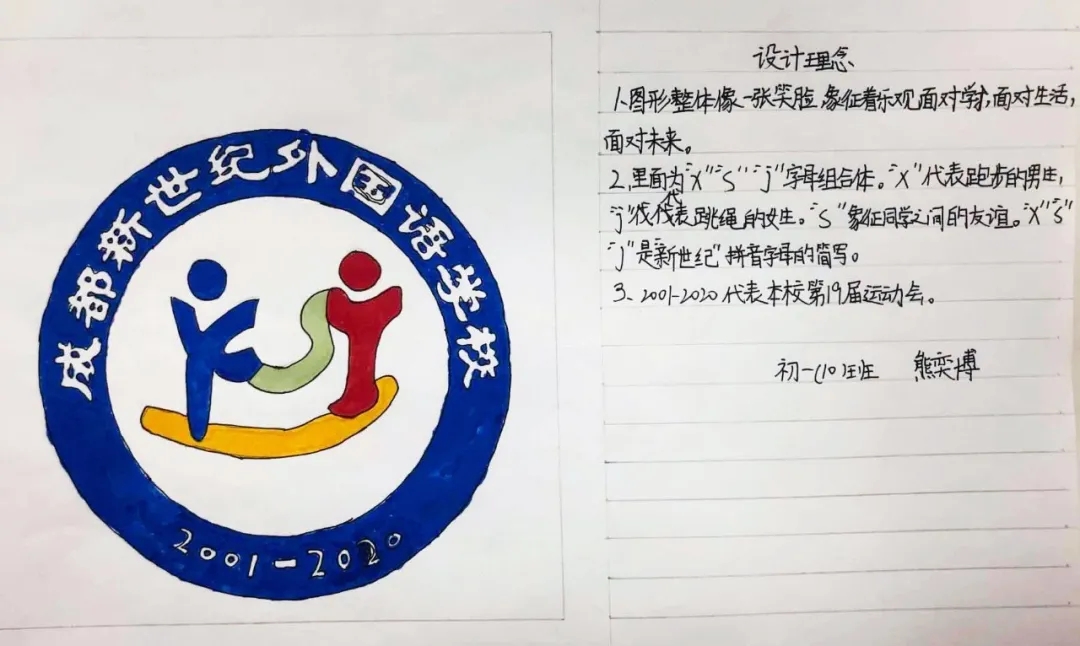 成都新世纪外国语学校
2001-2020
设计理念
1、图形整体像一张笑脸,象征着乐观面对学习,面对生活,
面对未来。
2、里面为"X""S""j"字母组合体。"X"代表跑步的男生,
"j"代表跳绳的女生。"S"象征同学之间的友谊。"X""S"
"j"是"新世纪"拼音字母的简写。
3、2001-2020代表本校第19届运动会。
初一(10)班 熊奕博